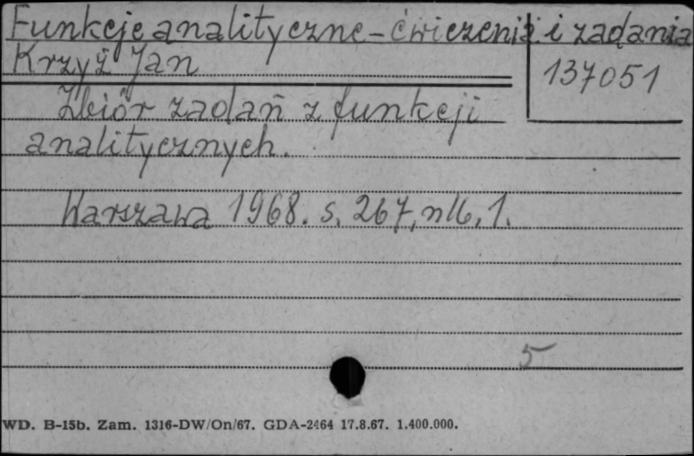 Funkcje analityczne - ćwiczenia i zadania
Krzyż Jan
137051
Zbiór zadań z funkcji
analitycznych.
Warszawa 1968. s. 267, nlb. 1.
5
WD. B-15b. Zam. 1316-DW/On/67. GDA-2464 17.8.67. 1.400.000.